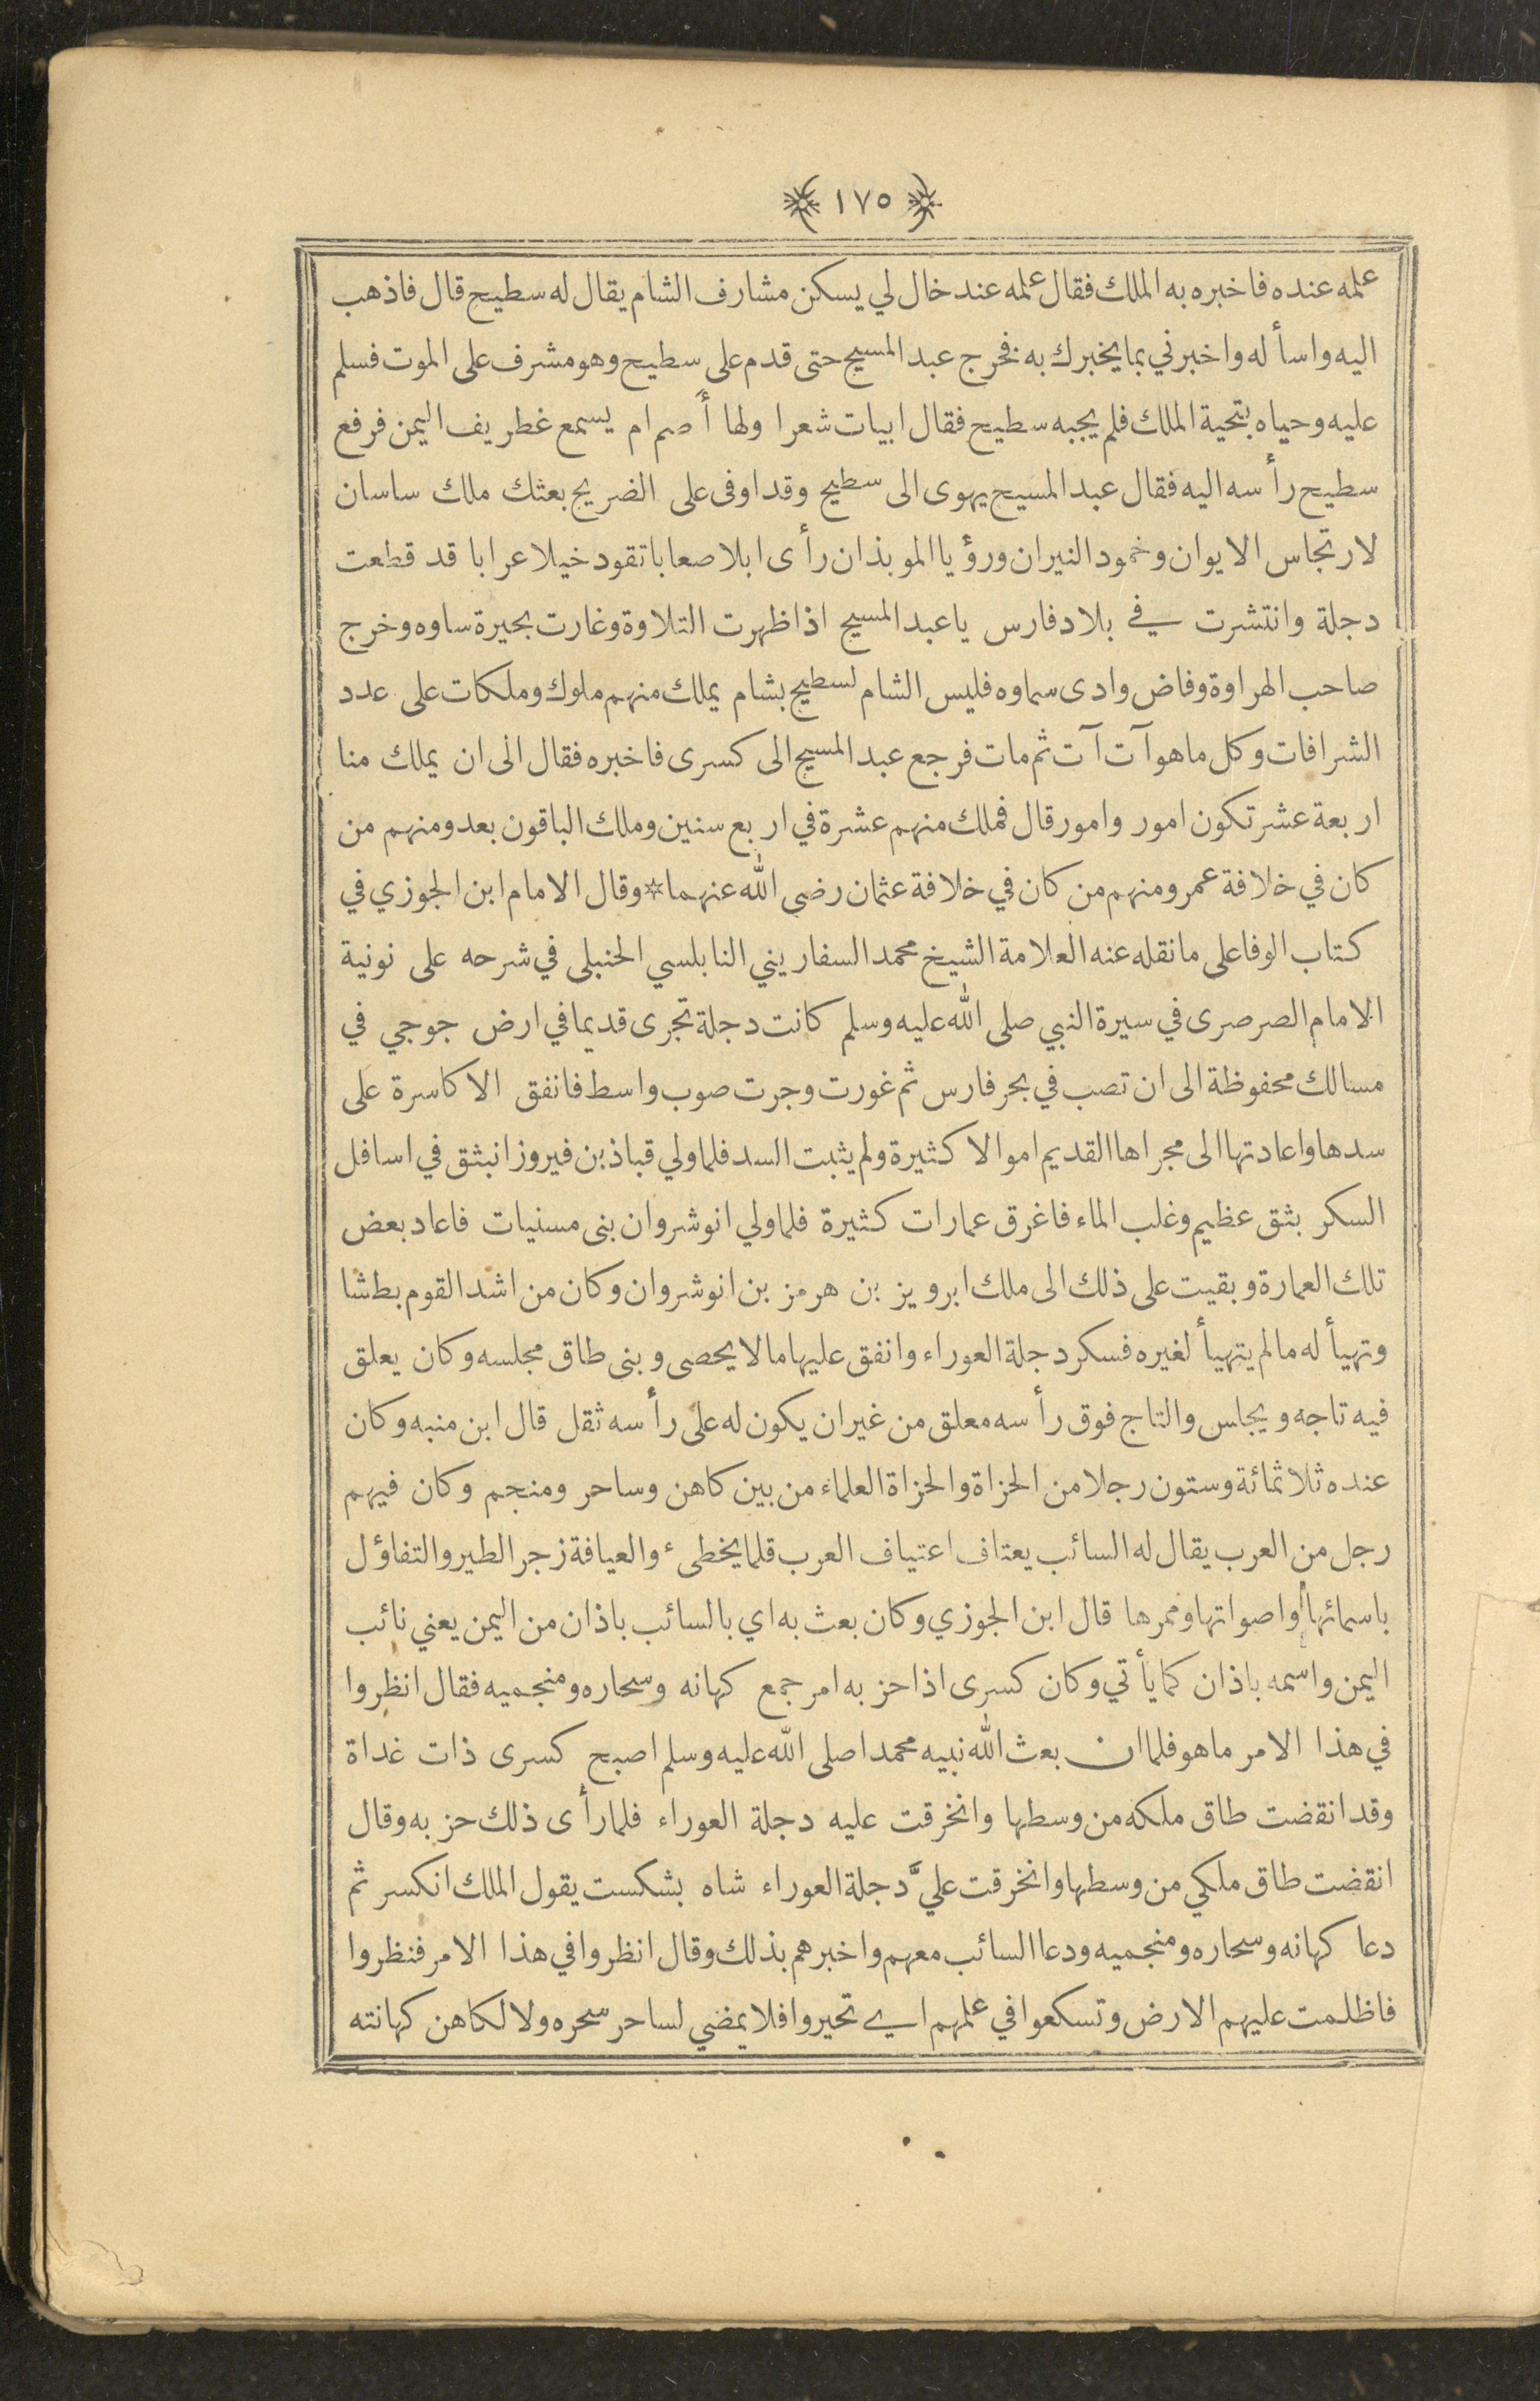 ١٧٥
علمه عنده فاخبره به الملك فقال علمه عند خال لي يسكن مشارف الشام يقال له سطيح قال فاذهب
اليه واسأ له واخبرني بما يخبرك به فخرج عبد المسيح حتى قدم على سطيح وهو مشرف على الموت فسلم
عليه وحياه بتحية الملك فلم يجبه سطيح فقال ابيات شعرا ولها أَصم ام يسمع غطريف اليمن فرفع
سطيح رأ سه اليه فقال عبد المسيح يهوى الى سطيح وقد اوفى على الضريح بعثك ملك ساسان
لارتجاس الايوان وخمود النيران ورؤيا الموبذان رأى ابلا صعابا تقود خيلا عرابا قد قطعت
دجلة وانتشرت في بلاد فارس يا عبد المسيح اذا ظهرت التلاوة وغارت بحيرة ساوه وخرج
صاحب الهراوة وفاض وادى سماوه فليس الشام لسطيح بشام يملك منهم ملوك وملكات على عدد
الشرافات وكل ما هو آت آت ثم مات فرجع عبد المسيح الى كسرى فاخبره فقال الى ان يملك منا
اربعة عشر تكون امور وامور قال فملك منهم عشرة في اربع سنين وملك الباقون بعد ومنهم من
كان في خلافة عمر ومنهم من كان في خلافة عثمان رضى الله عنهما * وقال الامام ابن الجوزي في
كتاب الوفا على ما نقله عنه العلامة الشيخ محمد السفاريني النابلسي الحنبلى في شرحه على نونية
الامام الصرصرى في سيرة النبي صلى الله عليه وسلم كانت دجلة تجرى قديما في ارض جوجي في
مسالك محفوظة الى ان تصب في بحر فارس ثم غورت وجرت صوب واسط فانفق الاكاسرة على
سدها واعادتها الى مجراها القديم اموالا كثيرة ولم يثبت السد فلما ولي قباذ بن فيروز انبثق في اسافل
السكر بثق عظيم وغلب الماء فاغرق عمارات كثيرة فلما ولي انوشروان بنى مسنيات فاعاد بعض
تلك العمارة وبقيت على ذلك الى ملك ابرويز بن هرمز بن انوشروان وكان من اشد القوم بطشا
وتهيأ له ما لم يتهيأ لغيره فسكر دجلة العوراء وانفق عليها ما لا يحصى وبنى طاق مجلسه وكان يعلق
فيه تاجه ويجلس والتاج فوق رأ سه معلق من غير ان يكون له على رأ سه ثقل قال ابن منبه وكان
عنده ثلاثمائة وستون رجلا من الحزاة والحزاة العلماء من بين كاهن وساحر ومنجم وكان فيهم
رجل من العرب يقال له السائب يعتاف اعتياف العرب قلما يخطىء والعيافة زجر الطير والتفاؤل
باسمائها واصواتها وممرها قال ابن الجوزي وكان بعث به اي بالسائب باذان من اليمن يعني نائب
اليمن واسمه باذان كما يأ تي وكان كسرى اذا حز به امر جمع كهانه وسحاره ومنجميه فقال انظروا
في هذا الامر ما هو فلما ان بعث الله نبيه محمدا صلى الله عليه وسلم اصبح كسرى ذات غداة
وقد انقضت طاق ملكه من وسطها وانخرقت عليه دجلة العوراء فلما رأى ذلك حز به وقال
انقضت طاق ملكي من وسطها وانخرقت عليَّ دجلة العوراء شاه بشكست يقول الملك انكسر ثم
دعا كهانه وسحاره ومنجميه ودعا السائب معهم واخبرهم بذلك وقال انظروا في هذا الامر فنظروا
فاظلمت عليهم الارض وتسكعوا في علمهم اي تحيروا فلا يمضي لساحر سحره ولا لكاهن كهانته